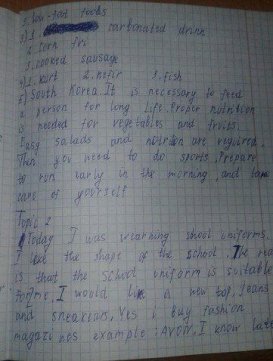 3. low-fat foods
3) 1. carbonated drink
2. corn fri
3. cooked sausage
4) 1. kurt 2. kefir 3. fish
5) South Korea. It is necessary to feed
a person for long life. Proper nutrition
is needed for vegetables and fruits.
Easy salads and nutrition are required.
Then you need to do sports. Prepare
to run early in the morning and take
care of yourself
Topic 2
Today I was wearning shool uniforms,
I like the shape of the school. The rea
is that the school uniform is suitable
for me, I would like a new top, jeans
and sneakers, Yes i buy fashion
magazines example: AVON, I know late